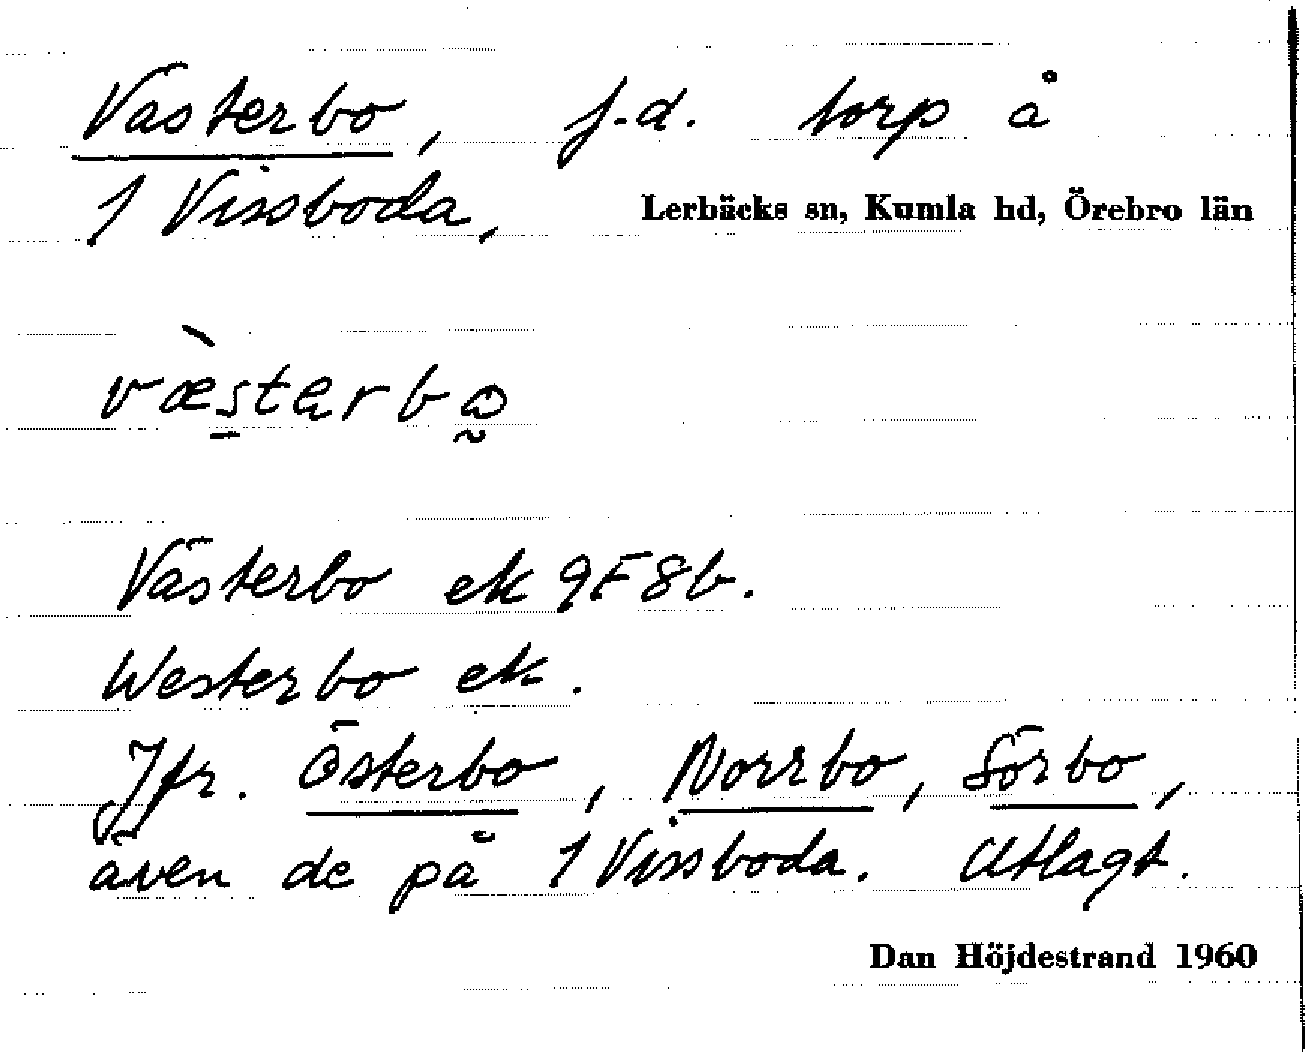 Västerbo, f.d. torp å
1 Vissboda, Lerbäcks sn, Kumla hd, Örebro län
væ̀stərbω
Västerbo ek 9F8b.
Westerbo ek.
Jfr. Österbo, Norrbo, Sörbo,
även de på 1 Vissboda. Utlagt.
Dan Höjdestrand 1960